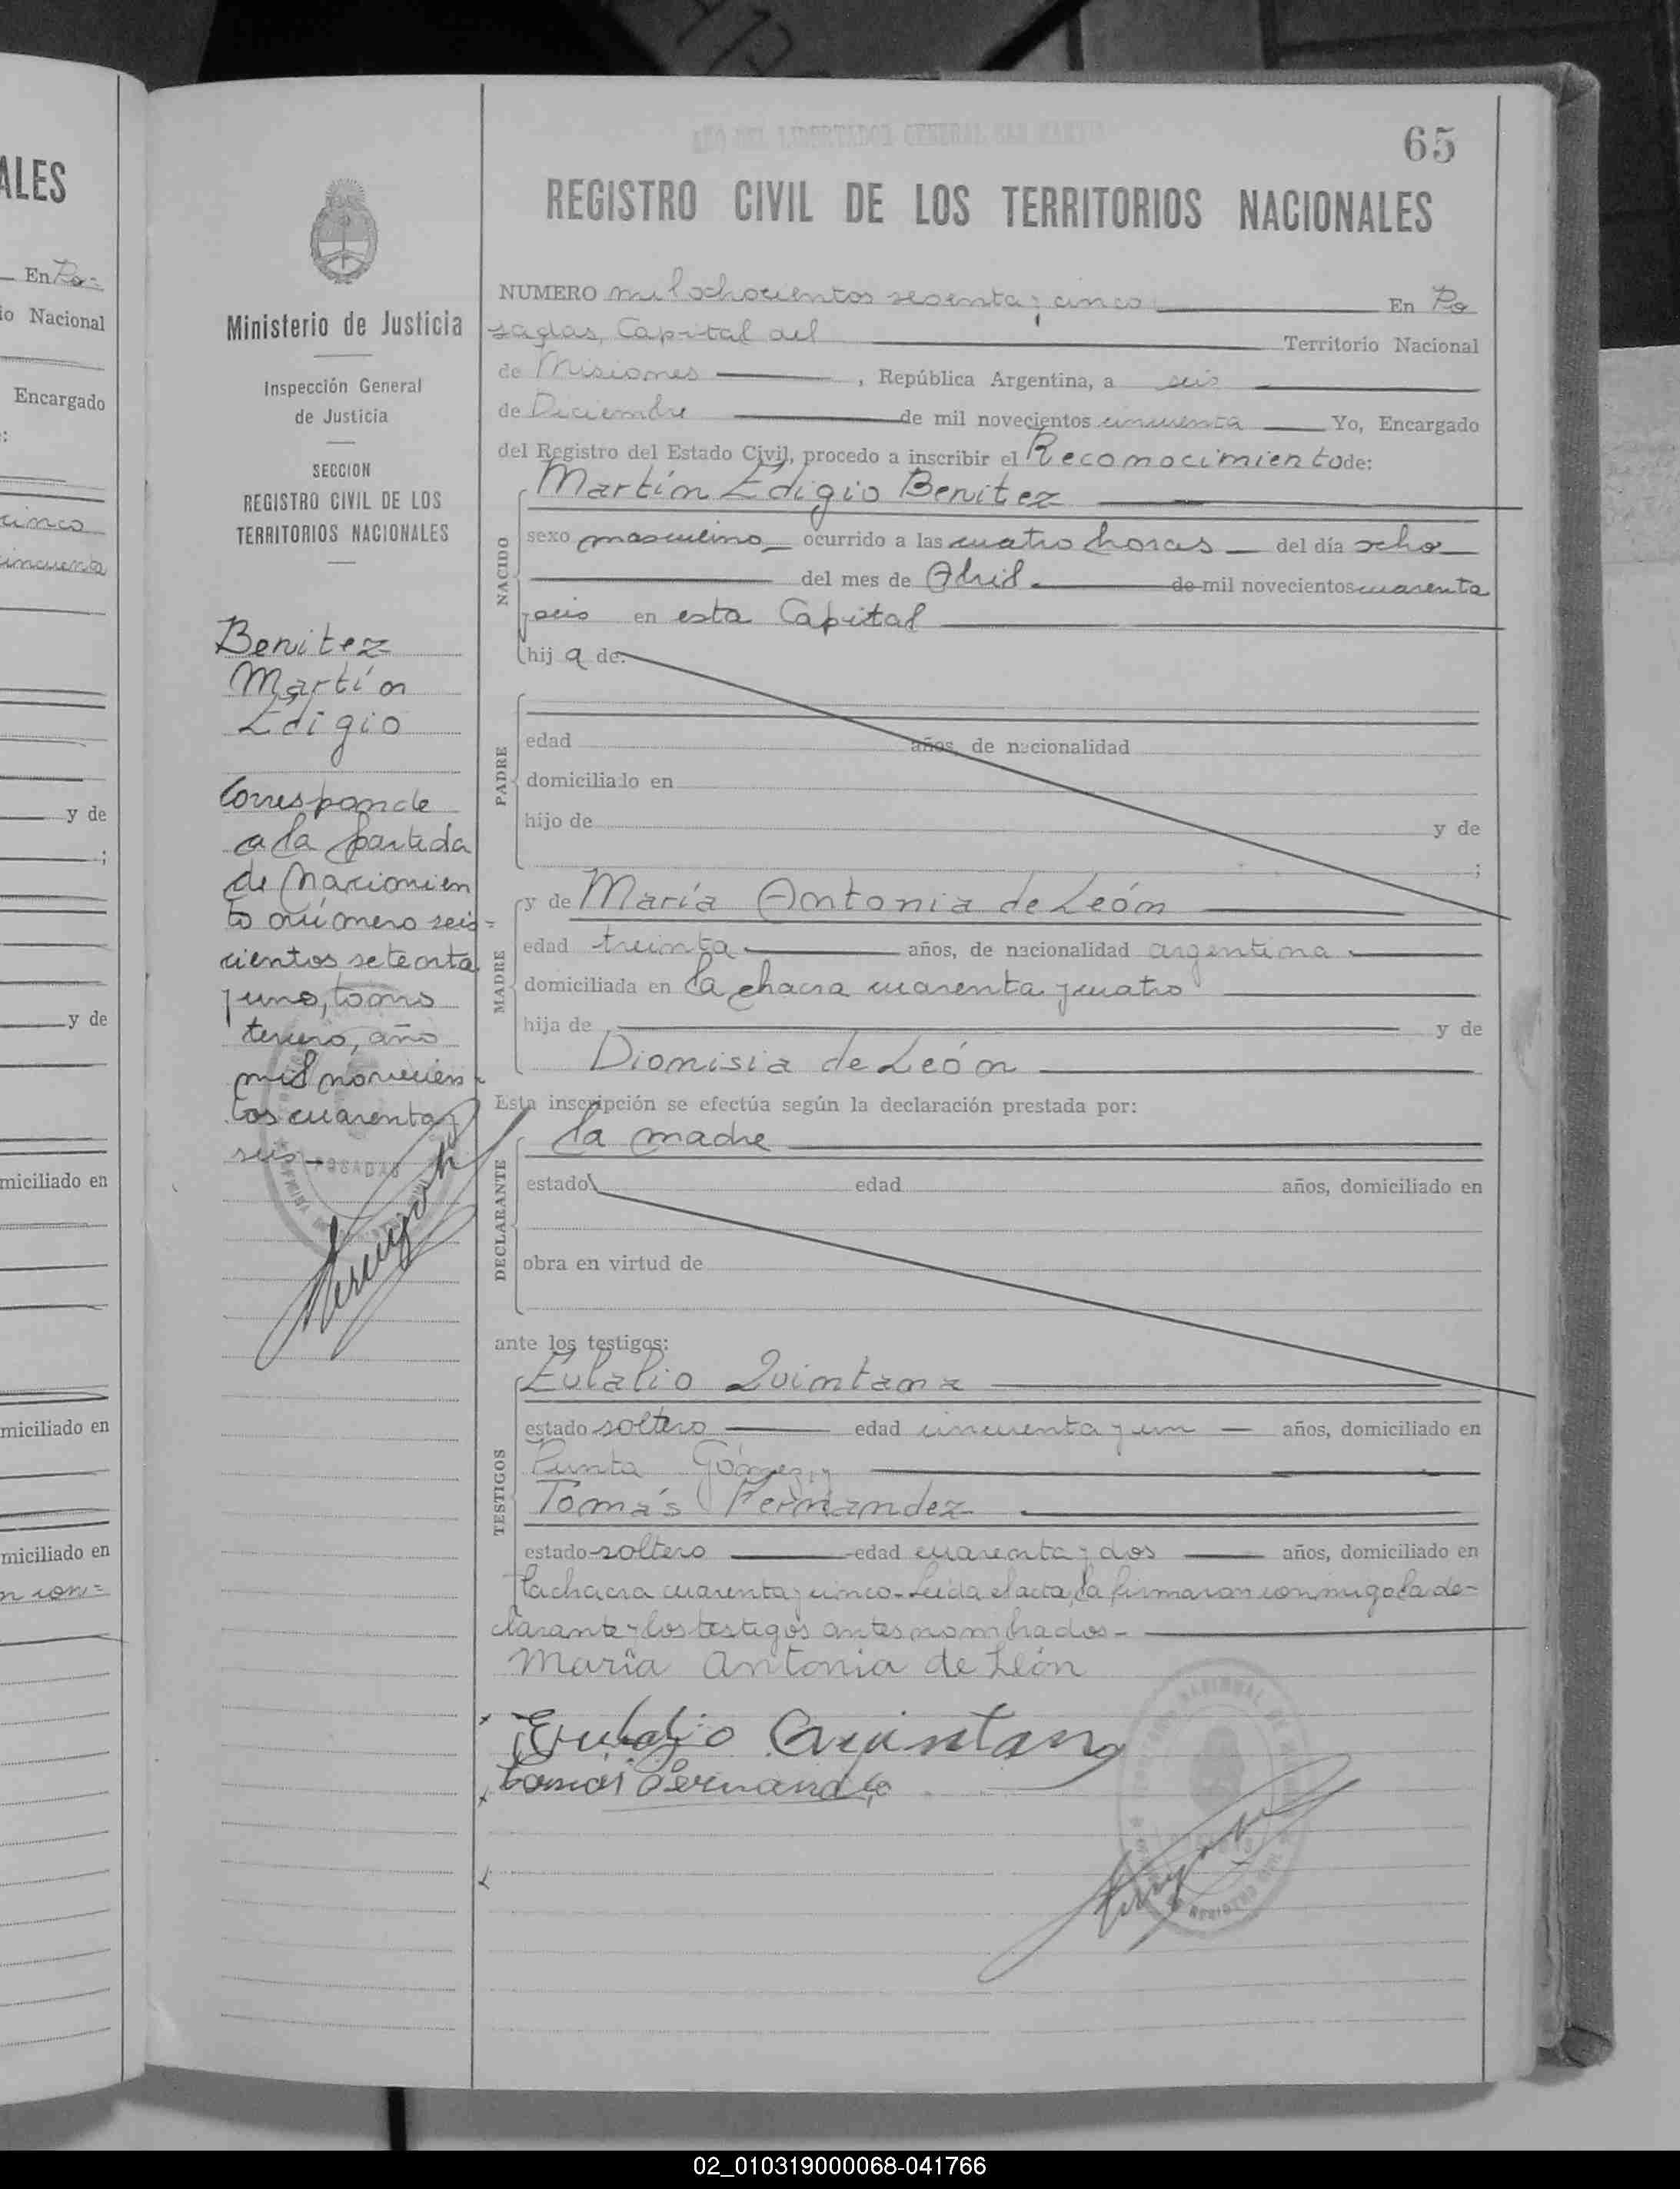 AÑO DEL LIBERTADOR GENERAL SAN MARTIN
65
REGISTRO CIVIL DE LOS TERRITORIOS NACIONALES
NUMERO mil ochocientos sesenta y cinco En Po
sadas, Capital del Territorio Nacional
de Misiones, República Argentina, a seis
de Diciembre de mil novecientos cincuenta Yo, Encargado
del Registro del Estado Civil, procedo a inscribir el Reconocimiento de:
NACIDO
Martín Edigio Benitez
sexo masculino ocurrido a las cuatro horas del día ocho
del mes de Abril de mil novecientos cuarenta
y seis en esta Capital
hij o de:
PADRE
edad años, de nacionalidad
domiciliado en
hijo de y de
;
MADRE
y de María Antonia de León
edad treinta años, de nacionalidad argentina
domiciliada en la chacra cuarenta y cuatro
hija de y de
Dionisia de León
Esta inscripción se efectúa según la declaración prestada por:
DECLARANTE
la madre
estado edad años, domiciliado en
obra en virtud de
ante los testigos:
TESTIGOS
Eulalio Quintana
estado soltero edad cincuenta y un años, domiciliado en
Punta Gómez, y
Tomás Fernandez
estado soltero edad cuarenta y dos años, domiciliado en
la chacra cuarenta y cinco.- Leida el acta, la firmaron conmigo la de-
clarante y los testigos antes nombrados.-
María Antonia de León
Eulalio Quintana
Tomas Fernande
Ministerio de Justicia
Inspección General
de Justicia
SECCION
REGISTRO CIVIL DE LOS
TERRITORIOS NACIONALES
Benitez
Martín
Edigio
Corresponde
a la partida
de Nacimien
to número seis-
cientos setenta
y uno, tomo
tercero, año
mil novecien-
tos cuarenta y
seis
POSADAS
ALES
En Po-
io Nacional
Encargado
:
cinco
cincuenta
y de
;
y de
miciliado en
miciliado en
miciliado en
n con-
02_010319000068-041766